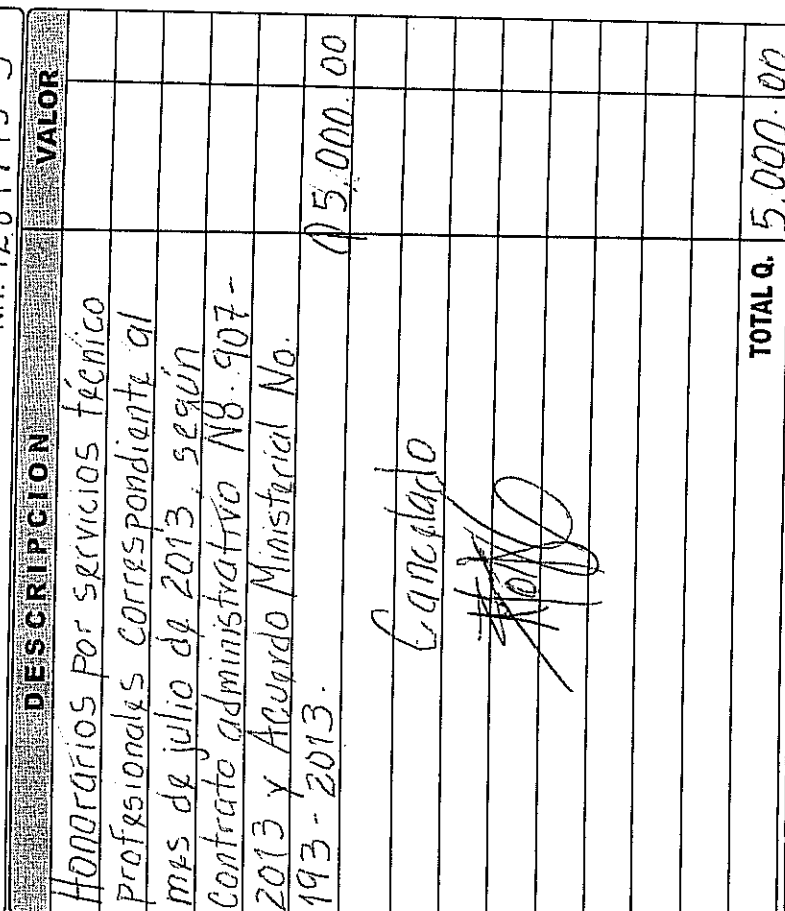 DESCRIPCION VALOR
Honorarios por servicios técnico
Profesionales correspondiente al
mes de julio de 2013, según
Contrato administrativo N8. 907-
2013 y Acuerdo Ministerial No.
193-2013. Q 5,000.00
Cancelado
TOTAL Q. 5,000.00